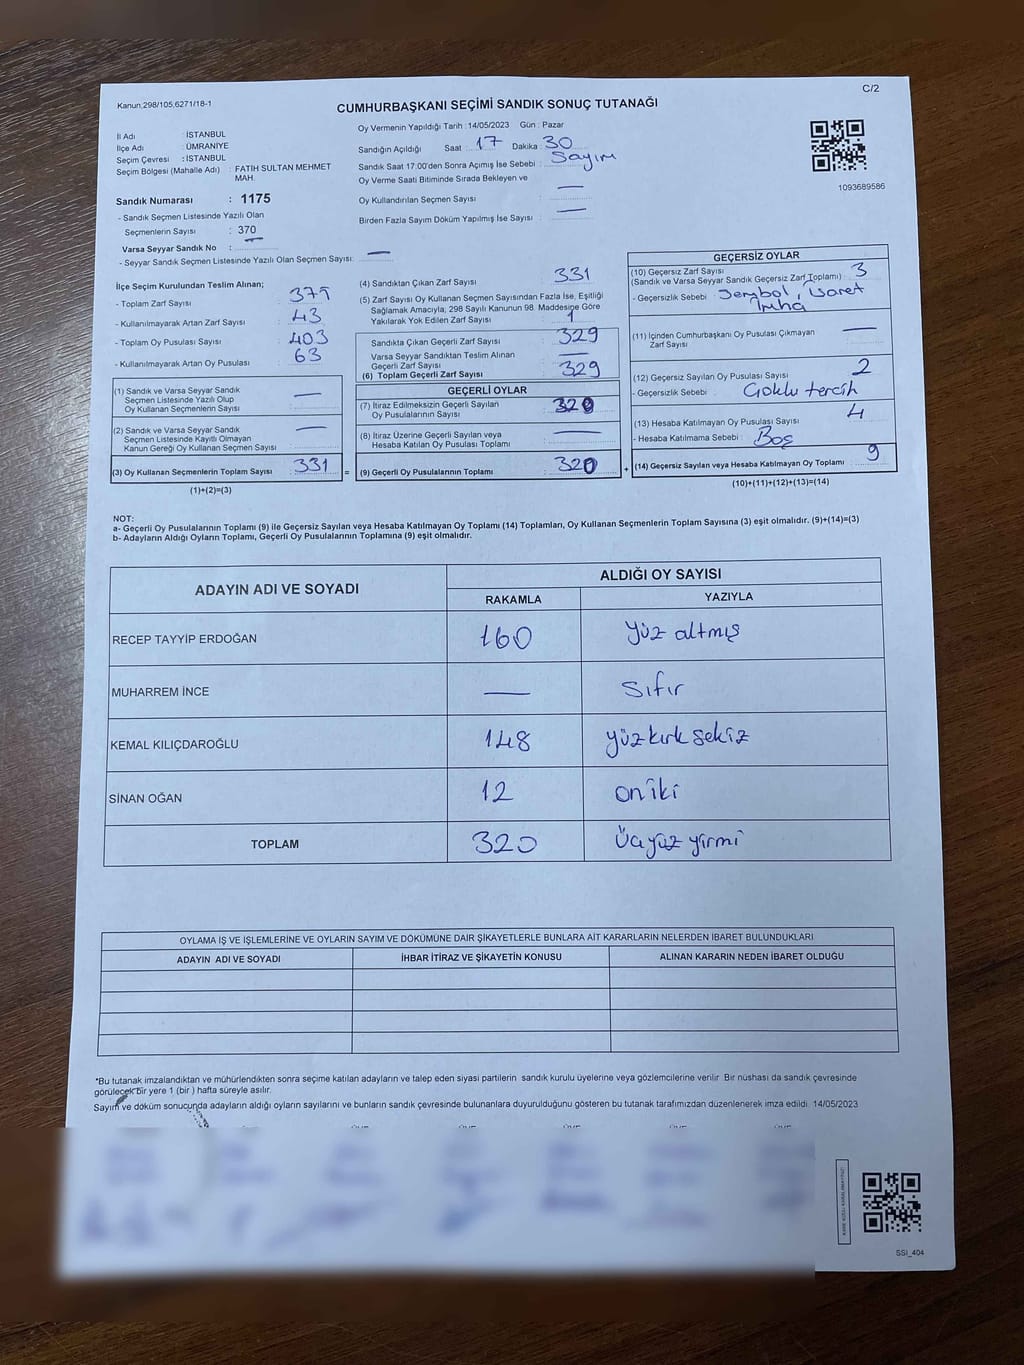 Kanun;298/105,6271/18-1
C/2
CUMHURBAŞKANI SEÇİMİ SANDIK SONUÇ TUTANAĞI
İl Adı : İSTANBUL
İlçe Adı : ÜMRANİYE
Seçim Çevresi : İSTANBUL
Seçim Bölgesi (Mahalle Adı) : FATİH SULTAN MEHMET MAH.
Sandık Numarası : 1175
- Sandık Seçmen Listesinde Yazılı Olan
Seçmenlerin Sayısı : 370
Varsa Seyyar Sandık No :
- Seyyar Sandık Seçmen Listesinde Yazılı Olan Seçmen Sayısı: —
Oy Vermenin Yapıldığı Tarih : 14/05/2023 Gün : Pazar
Sandığın Açıldığı Saat : 17 Dakika : 30
Sandık Saat 17:00'den Sonra Açımış İse Sebebi : Sayım
Oy Verme Saati Bitiminde Sırada Bekleyen ve
Oy Kullandırılan Seçmen Sayısı : —
Birden Fazla Sayım Döküm Yapılmış İse Sayısı : —
1093689586
İlçe Seçim Kurulundan Teslim Alınan;
- Toplam Zarf Sayısı : 375
- Kullanılmayarak Artan Zarf Sayısı : 43
- Toplam Oy Pusulası Sayısı : 403
- Kullanılmayarak Artan Oy Pusulası : 63
(1) Sandık ve Varsa Seyyar Sandık
Seçmen Listesinde Yazılı Olup
Oy Kullanan Seçmenlerin Sayısı —
(2) Sandık ve Varsa Seyyar Sandık
Seçmen Listesinde Kayıtlı Olmayan
Kanun Gereği Oy Kullanan Seçmen Sayısı —
(3) Oy Kullanan Seçmenlerin Toplam Sayısı : 331 =
(1)+(2)=(3)
(4) Sandıktan Çıkan Zarf Sayısı : 331
(5) Zarf Sayısı Oy Kullanan Seçmen Sayısından Fazla İse, Eşitliği
Sağlamak Amacıyla; 298 Sayılı Kanunun 98. Maddesine Göre
Yakılarak Yok Edilen Zarf Sayısı : 1
Sandıkta Çıkan Geçerli Zarf Sayısı : 329
Varsa Seyyar Sandıktan Teslim Alınan
Geçerli Zarf Sayısı : —
(6) Toplam Geçerli Zarf Sayısı : 329
GEÇERLİ OYLAR
(7) İtiraz Edilmeksizin Geçerli Sayılan
Oy Pusulalarının Sayısı : 320
(8) İtiraz Üzerine Geçerli Sayılan veya
Hesaba Katılan Oy Pusulası Toplamı : —
(9) Geçerli Oy Pusulalarının Toplamı : 320 +
GEÇERSİZ OYLAR
(10) Geçersiz Zarf Sayısı
(Sandık ve Varsa Seyyar Sandık Geçersiz Zarf Toplamı) : 3
- Geçersizlik Sebebi : Sembol, İşaret
İmha
(11) İçinden Cumhurbaşkanı Oy Pusulası Çıkmayan
Zarf Sayısı : —
(12) Geçersiz Sayılan Oy Pusulası Sayısı : 2
- Geçersizlik Sebebi : Çoklu tercih
(13) Hesaba Katılmayan Oy Pusulası Sayısı : 4
- Hesaba Katılmama Sebebi : Boş
(14) Geçersiz Sayılan veya Hesaba Katılmayan Oy Toplamı : 9
(10)+(11)+(12)+(13)=(14)
NOT:
a- Geçerli Oy Pusulalarının Toplamı (9) ile Geçersiz Sayılan veya Hesaba Katılmayan Oy Toplamı (14) Toplamları, Oy Kullanan Seçmenlerin Toplam Sayısına (3) eşit olmalıdır. (9)+(14)=(3)
b- Adayların Aldığı Oyların Toplamı, Geçerli Oy Pusulalarının Toplamına (9) eşit olmalıdır.
ADAYIN ADI VE SOYADI ALDIĞI OY SAYISI
RAKAMLA YAZIYLA
RECEP TAYYİP ERDOĞAN 160 Yüz altmış
MUHARREM İNCE — Sıfır
KEMAL KILIÇDAROĞLU 148 yüzkırk sekiz
SİNAN OĞAN 12 oniki
TOPLAM 320 Üçyüz yirmi
OYLAMA İŞ VE İŞLEMLERİNE VE OYLARIN SAYIM VE DÖKÜMÜNE DAİR ŞİKAYETLERLE BUNLARA AİT KARARLARIN NELERDEN İBARET BULUNDUKLARI
ADAYIN ADI VE SOYADI İHBAR İTİRAZ VE ŞİKAYETİN KONUSU ALINAN KARARIN NEDEN İBARET OLDUĞU
*Bu tutanak imzalandıktan ve mühürlendikten sonra seçime katılan adayların ve talep eden siyasi partilerin sandık kurulu üyelerine veya gözlemcilerine verilir. Bir nüshası da sandık çevresinde
görülecek bir yere 1 (bir) hafta süreyle asılır.
Sayım ve döküm sonucunda adayların aldığı oyların sayılarını ve bunların sandık çevresinde bulunanlara duyurulduğunu gösteren bu tutanak tarafımızdan düzenlenerek imza edildi. 14/05/2023
SSI_404